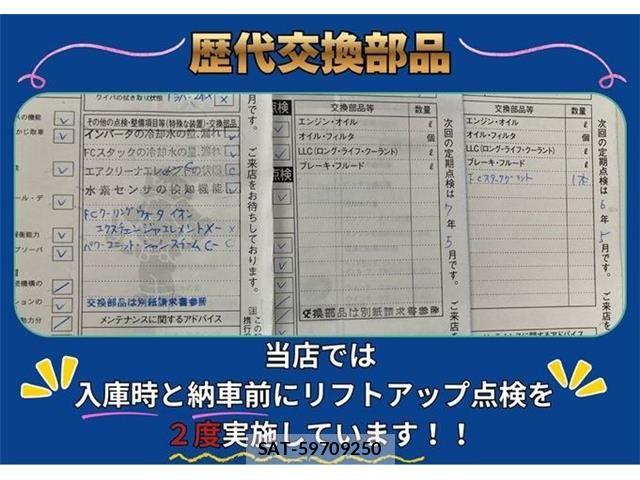 歴代交換部品
ワイパの拭き取り状態
その他の点検・整備項目等(特殊な装置)・交換部品
インバータの冷却水の量、漏れ
FCスタックの冷却水の量、漏れ
エアクリーナエレメントの状態 C
水素センサの検知機能
FCクーリングウォータ イオン
エクスチェンジャエレメント X- X
交換部品は別紙請求書参照
メンテナンスに関するアドバイス
月です。 ご来店をお待ちしております。
点検
交換部品等 数量
エンジン・オイル ℓ
オイル・フィルタ 個
LLC(ロング・ライフ・クーラント) ℓ
ブレーキ・フルード ℓ
点検
交換部品は別紙請求書参照
次回の定期点検は 7年 5月です。 ご来店を
交換部品等 数量
エンジン・オイル ℓ
オイル・フィルタ 個
LLC(ロング・ライフ・クーラント) ℓ
ブレーキ・フルード ℓ
メンテナンスに関するアドバイス
次回の定期点検は 6年 5月です。 ご来店を
当店では
入庫時と納車前にリフトアップ点検を
２度実施しています！！
SAT-59709250